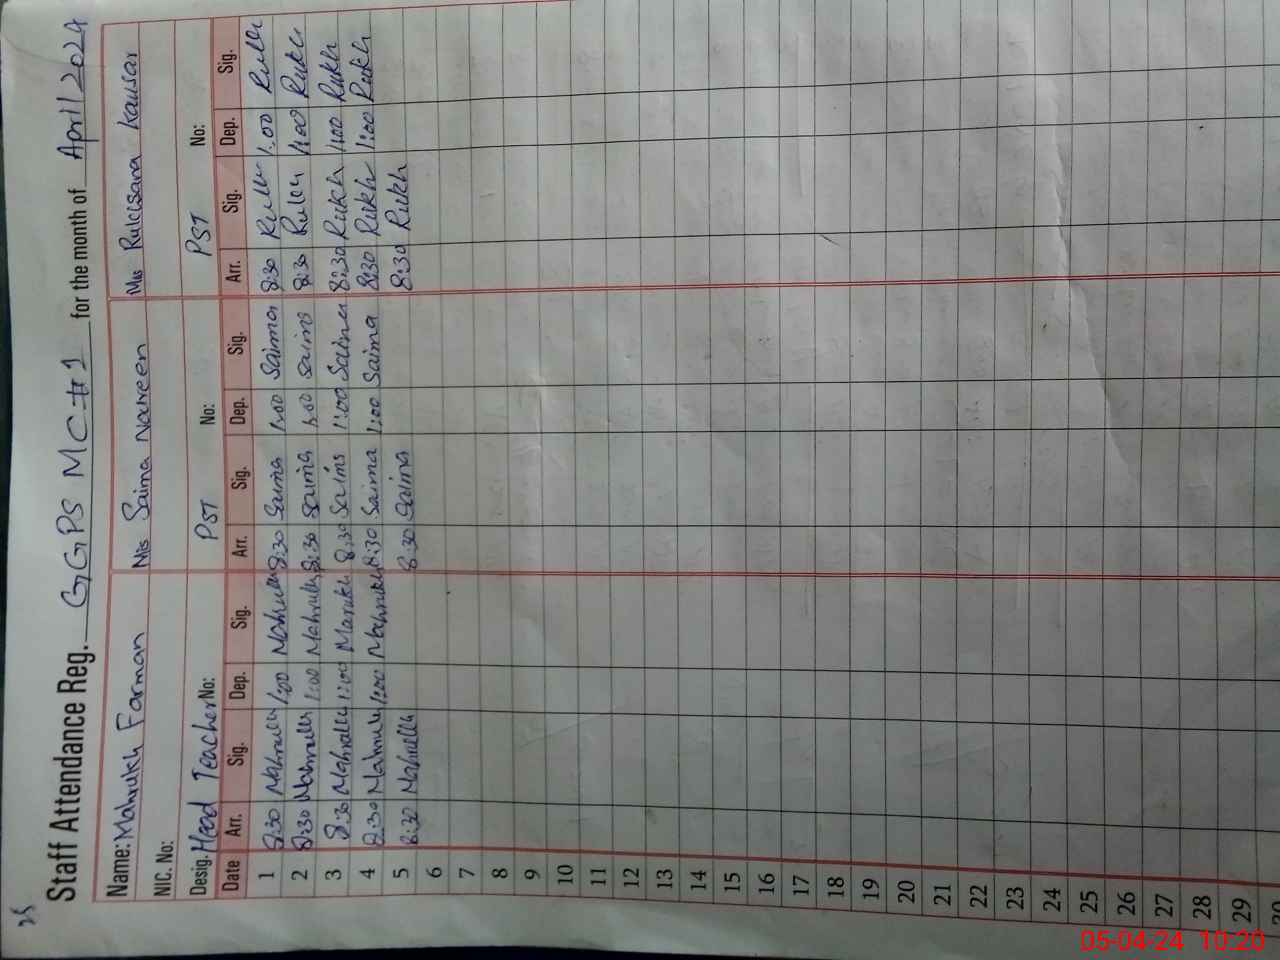 25
Staff Attendance Reg. GGPS MC#1 for the month of April 2024
Name: Mahrukh Farman Mis Saima Noureen Mis Rukhsana Kausar
NIC. No:
Desig. Head Teacher No: PST No: PST No:
Date Arr. Sig. Dep. Sig. Arr. Sig. Dep. Sig. Arr. Sig. Dep. Sig.
1 8:30 Mahrukh 1:00 Mahrukh 8:30 Saima 1:00 Saima 8:30 Rukh 1:00 Rukh
2 8:30 Mahrukh 1:00 Mahrukh 8:30 Saima 1:00 Saima 8:30 Rukh 1:00 Rukh
3 8:30 Mahrukh 1:00 Marukh 8:30 Saima 1:00 Saima 8:30 Rukh 1:00 Rukh
4 8:30 Mahrukh 1:00 Mahrukh 8:30 Saima 1:00 Saima 8:30 Rukh 1:00 Rukh
5 8:30 Mahrukh 8:30 Saima 8:30 Rukh
6
7
8
9
10
11
12
13
14
15
16
17
18
19
20
21
22
23
24
25
26
27
28
29
30
05-04-24 10:20